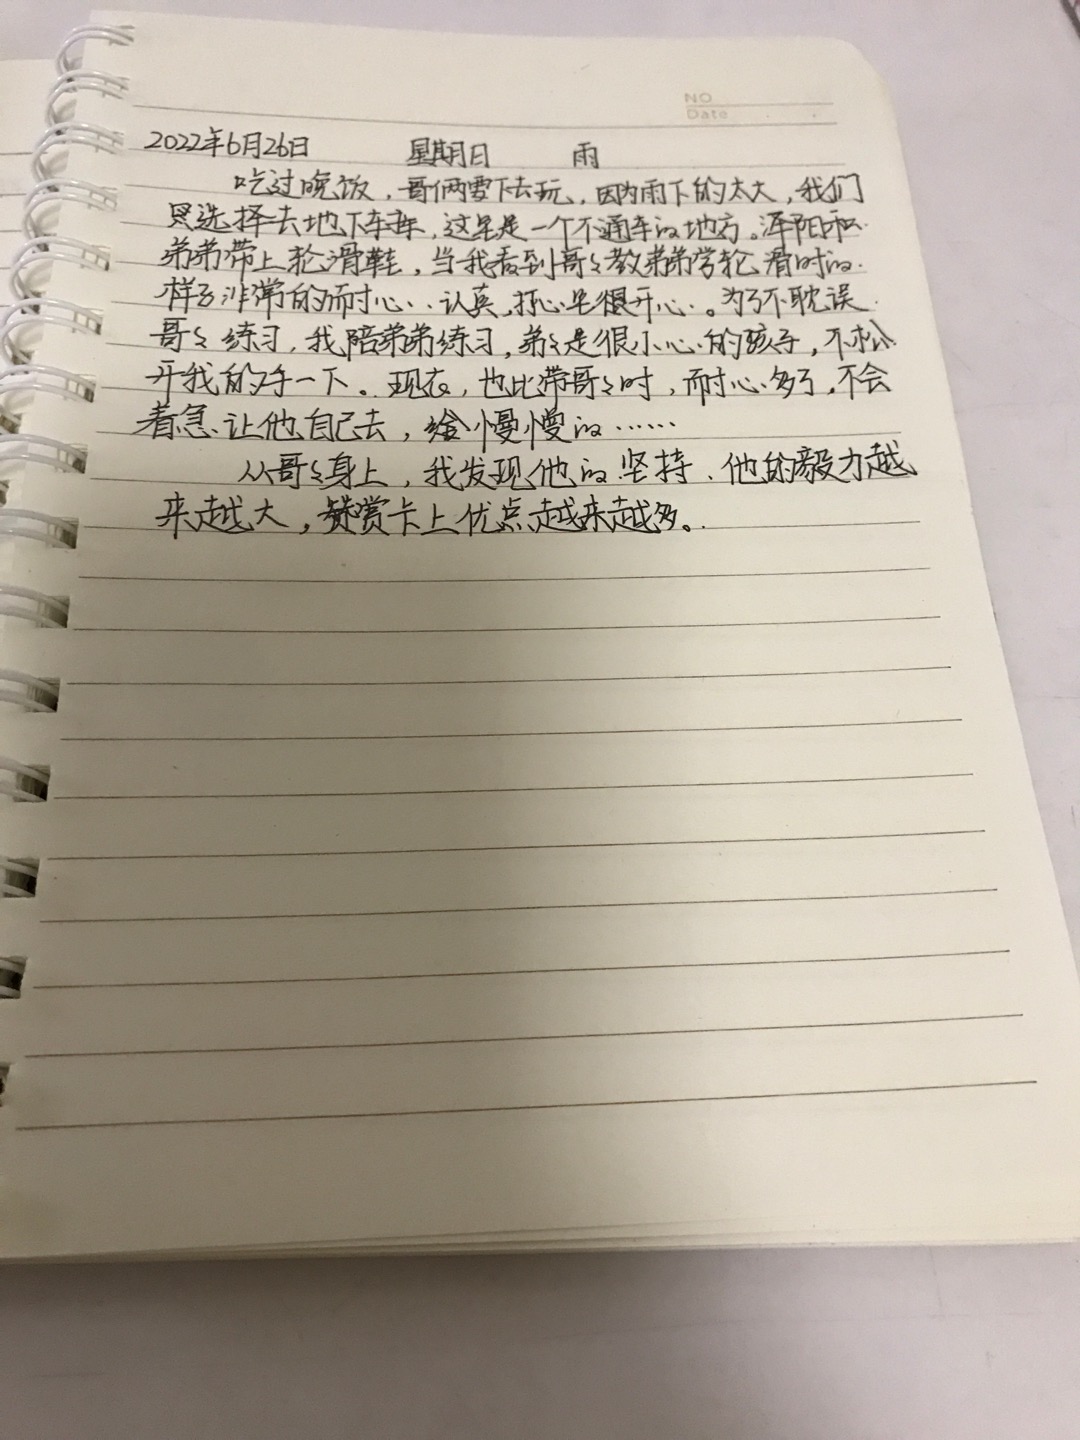 NO
Date
2022年6月26日 星期日 雨
吃过晚饭，哥俩要下去玩，因为雨下的太大，我们
选择去地下车库，这里是一个不通车的地方。泽阳和
弟弟带上轮滑鞋，当我看到哥々教弟弟学轮滑时的
样子非常的耐心、认真，打心里很开心。为了不耽误
哥々练习，我陪弟弟练习，弟々是很小心的孩子，不松
开我的手一下。现在，也比带哥々时，耐心多了，不会
着急让他自己去，会慢慢的……
从哥々身上，我发现他的坚持、他的毅力越
来越大，赞赏卡上优点越来越多。